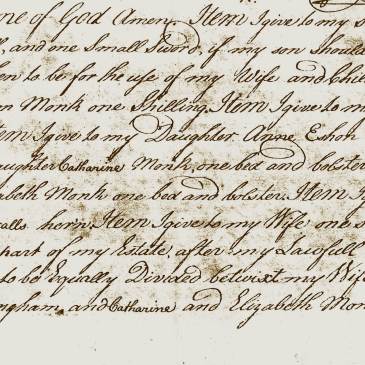 me of God Amen. Item I give to my s
, and one Small Sword, if my son Shoul
en to be for the use of my Wife and Chil
n Monk one Shilling, Item I give to m
em I give to my Daughter Anne Eshon
aughter Catharine Monk, one bed and bolster
abeth Monk one bed and bolster Item I g
alls horn Item I give to my Wife one s
part of my Estate, after my Lawfull
to be Equally Divided betwixt my Wife
ngham, and Catharine and Elizabeth Mon